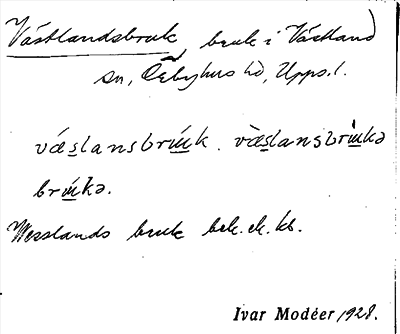 Västlandsbruk, bruk i Västland
sn, Örbyhus hd, Upps. l.
væslansbrʉk. væslansbrʉkə
brʉkə.
Wesslands bruk bek. ek. kb.
Ivar Modéer 1928.